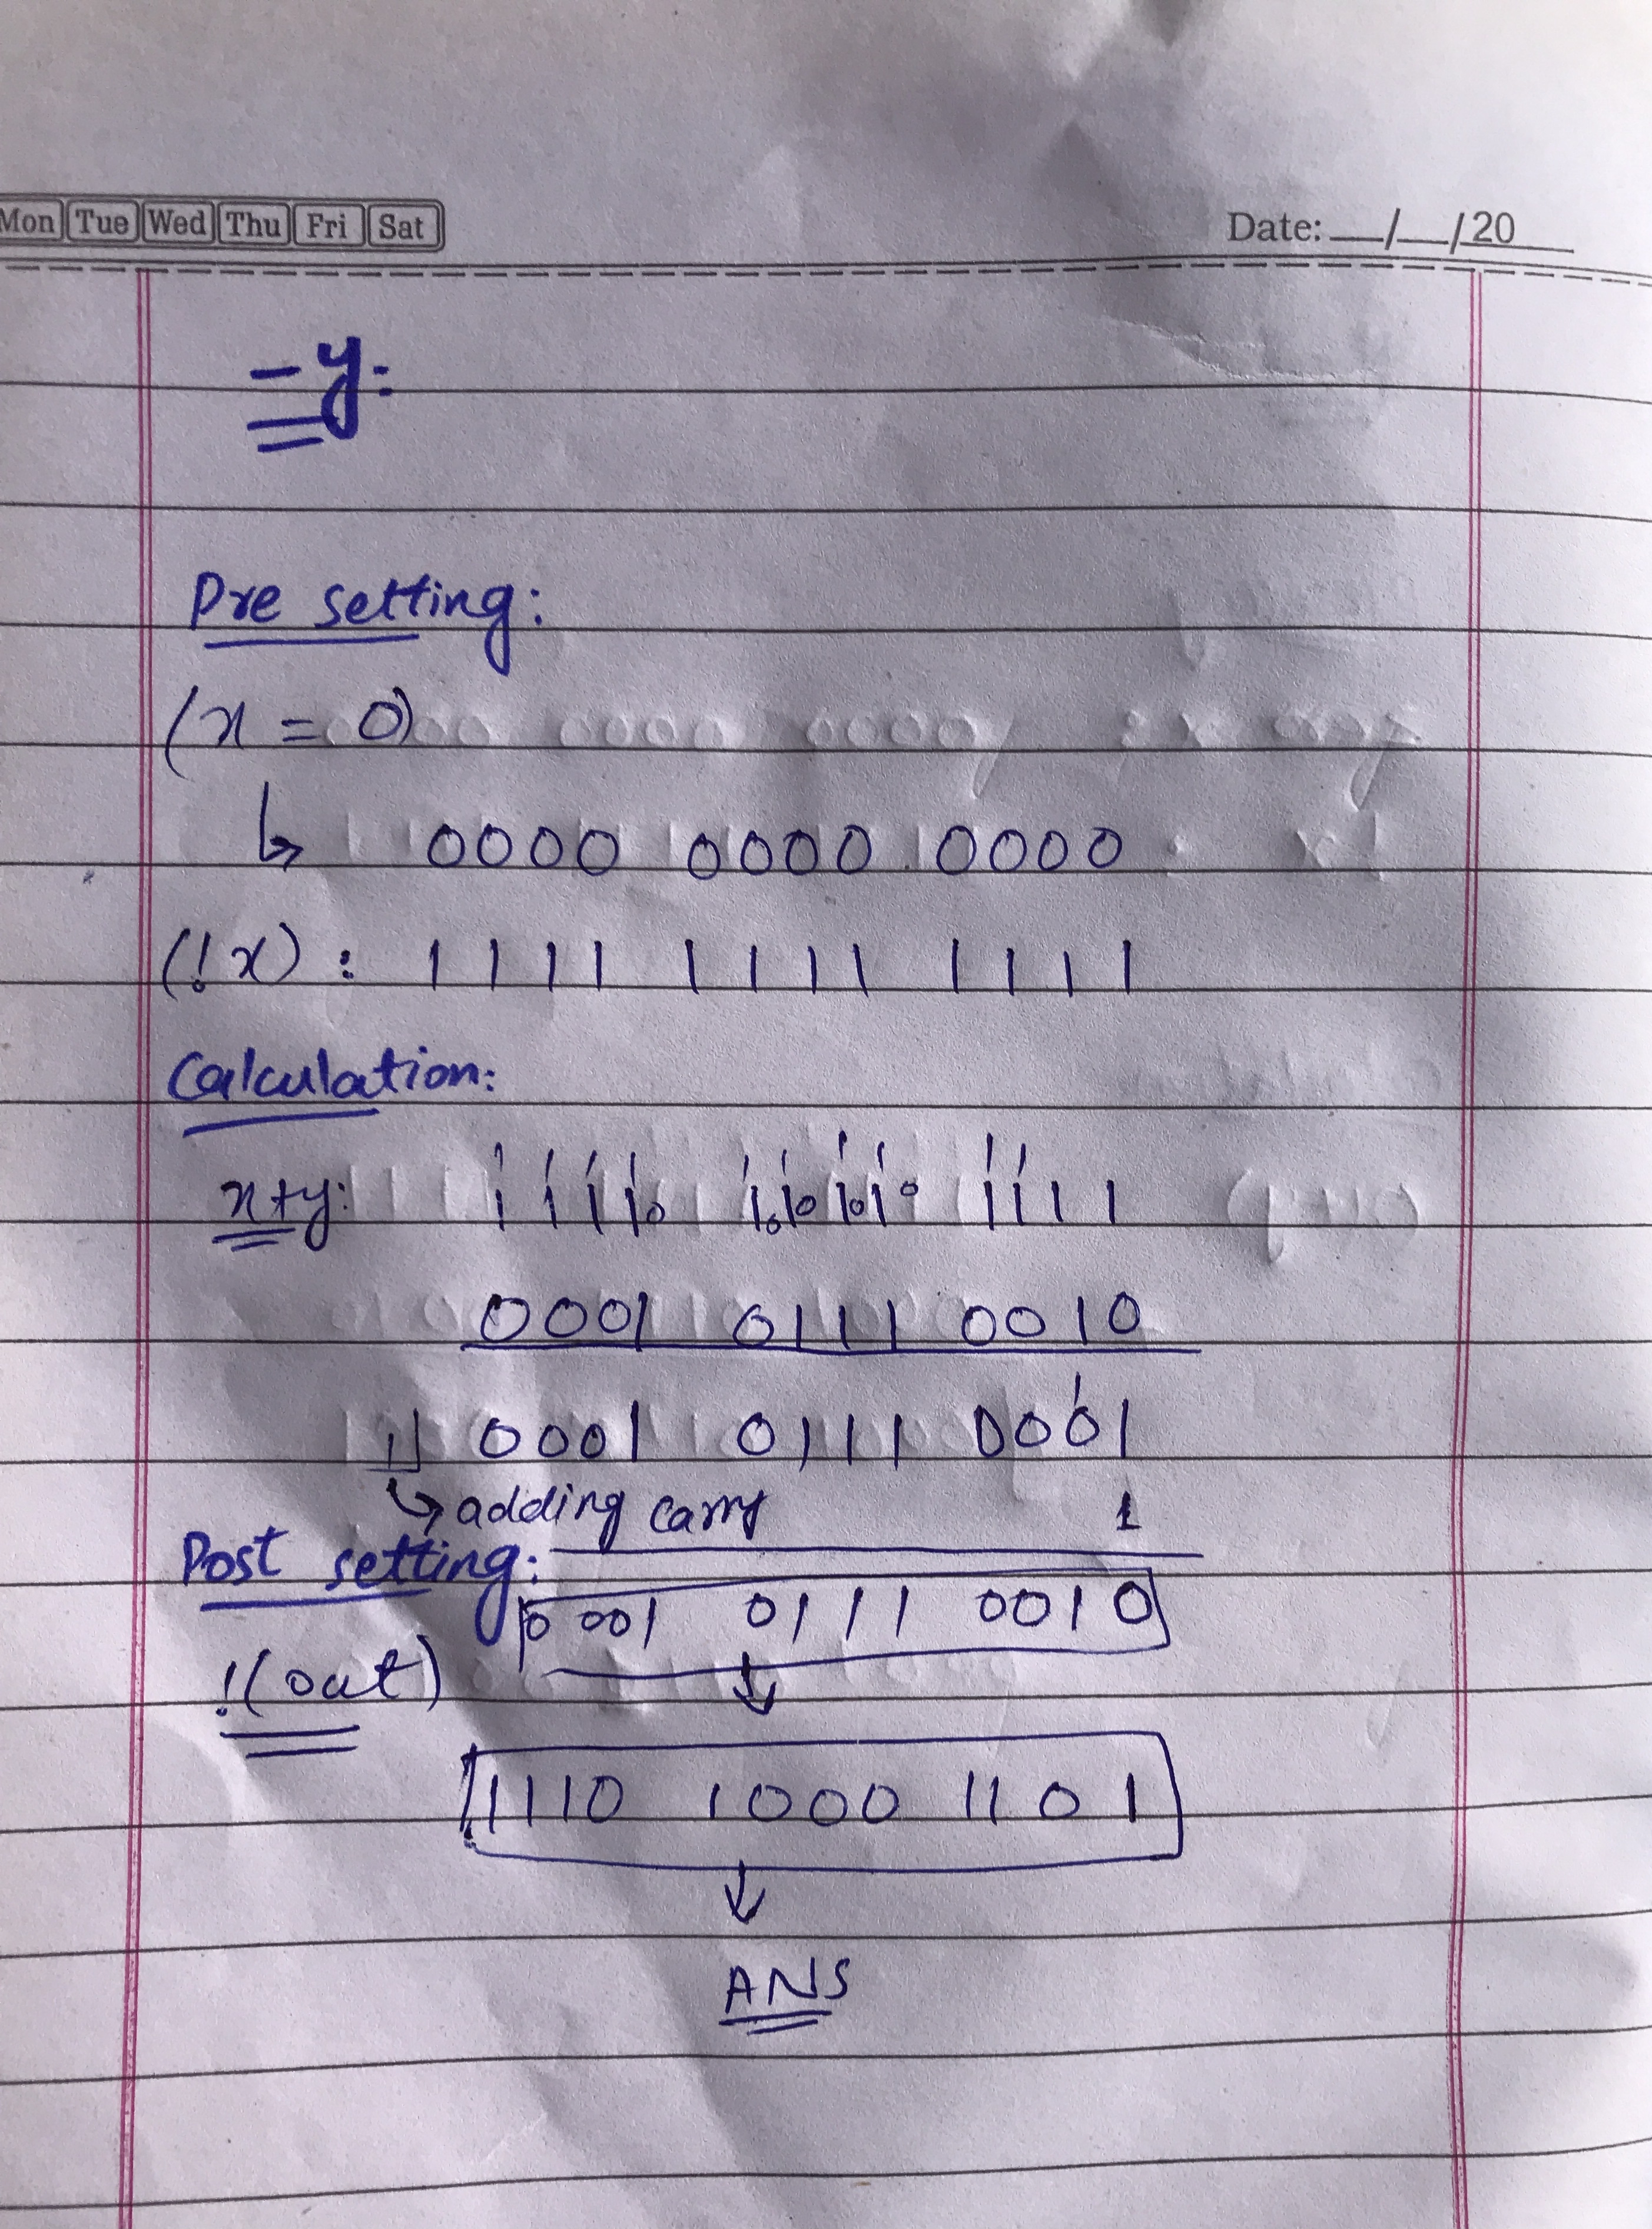 Mon Tue Wed Thu Fri Sat
Date: __/__/20__
-y:
Pre setting:
(x = 0)
0000 0000 0000
(!x) : 1111 1111 1111
Calculation:
x+y: 1111 1111 1111
0001 0111 0010
1 0001 0111 0001
adding carry 1
Post setting:
0001 0111 0010
!(out)
1110 1000 1101
ANS